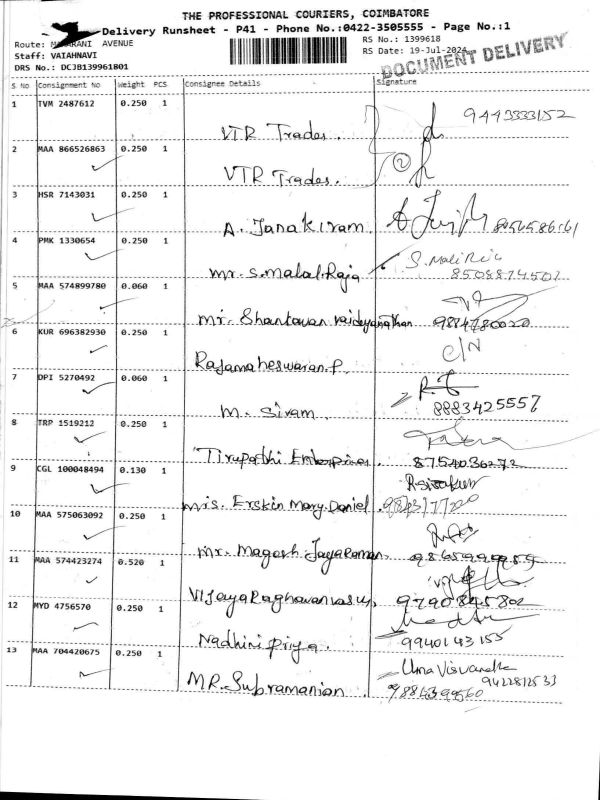 THE PROFESSIONAL COURIERS, COIMBATORE
Delivery Runsheet - P41 - Phone No.:0422-3505555 - Page No.:1
Route: MAHARANI AVENUE
Staff: VAIAHNAVI
DRS No.: DCJB139961801
RS No.: 1399618
RS Date: 19-Jul-2024
DOCUMENT DELIVERY
S.No Consignment No Weight PCS Consignee Details Signature
1 TVM 2487612 0.250 1
VTR Trades. 9443333152
2 MAA 866526863 0.250 1
VTR Trades. 2
3 HSR 7143031 0.250 1
A. Janakiram
4 PMK 1330654 0.250 1
mr. S. Malal Raja
5 MAA 574899780 0.060 1
mr. Shantavan vaideyanathan 9884780020
6 KUR 696382930 0.250 1
Rajamaheswaran.P. C/N
7 DPI 5270492 0.060 1
M. Sivam 8883425557
8 TRP 1519212 0.250 1
Tirupathi Enterprises. 8754036272
9 CGL 100048494 0.130 1
mis. Erskin Mary Daniel
10 MAA 575063092 0.250 1
mr. Magesh Jayaraman
11 MAA 574423274 0.520 1
Vijayaraghavan vasu, 9790845802
12 MYD 4756570 0.250 1
Nadhini Priya. 9940143155
13 MAA 704420675 0.250 1
MR. Subramanian. Uma Viswanath
9422812533